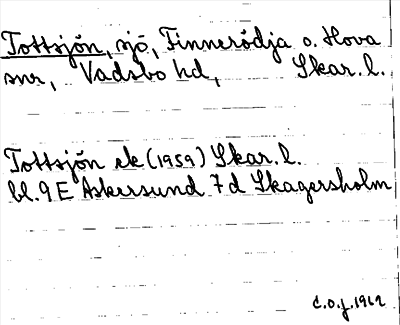 Tottsjön, sjö, Finnerödja o. Hova
snr, Vadsbo hd, Skar. l.
Tottsjön ek (1959) Skar. l.
bl. 9 E Askersund 7 d Skagersholm
C.O.J. 1962